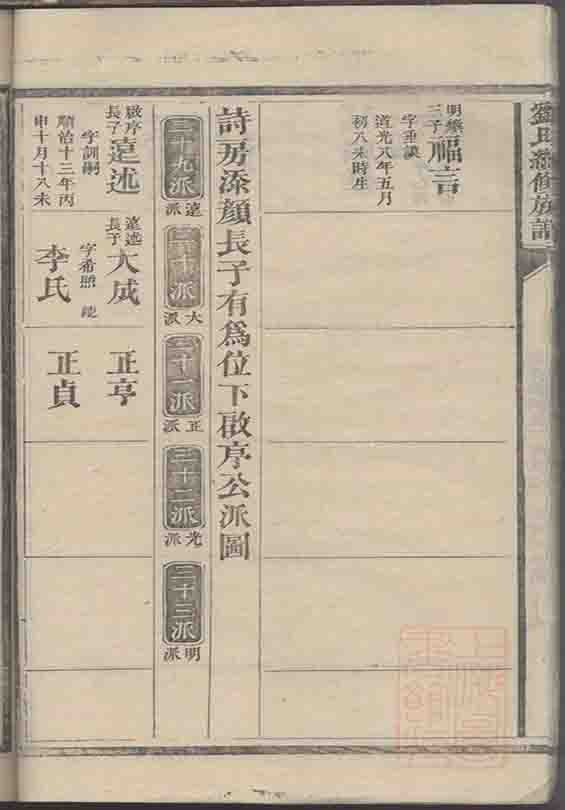 劉氏 修族譜
明
三子
福言
字垂謨
道光八年五月
初八未時生
詩房添顏長子有為位下啟序公派圖
二十九派
遠派
三十派
大派
三十一派
正派
三十二派
光派
三十三派
明派
啟序
長子
遠述
字訓嗣
順治十三年丙
申十月十八未
遠述
長子
大成
字希照
李氏
正亨
正貞